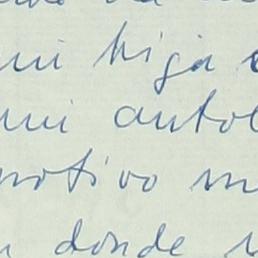 mi hija
mi antol
motivo m
donde